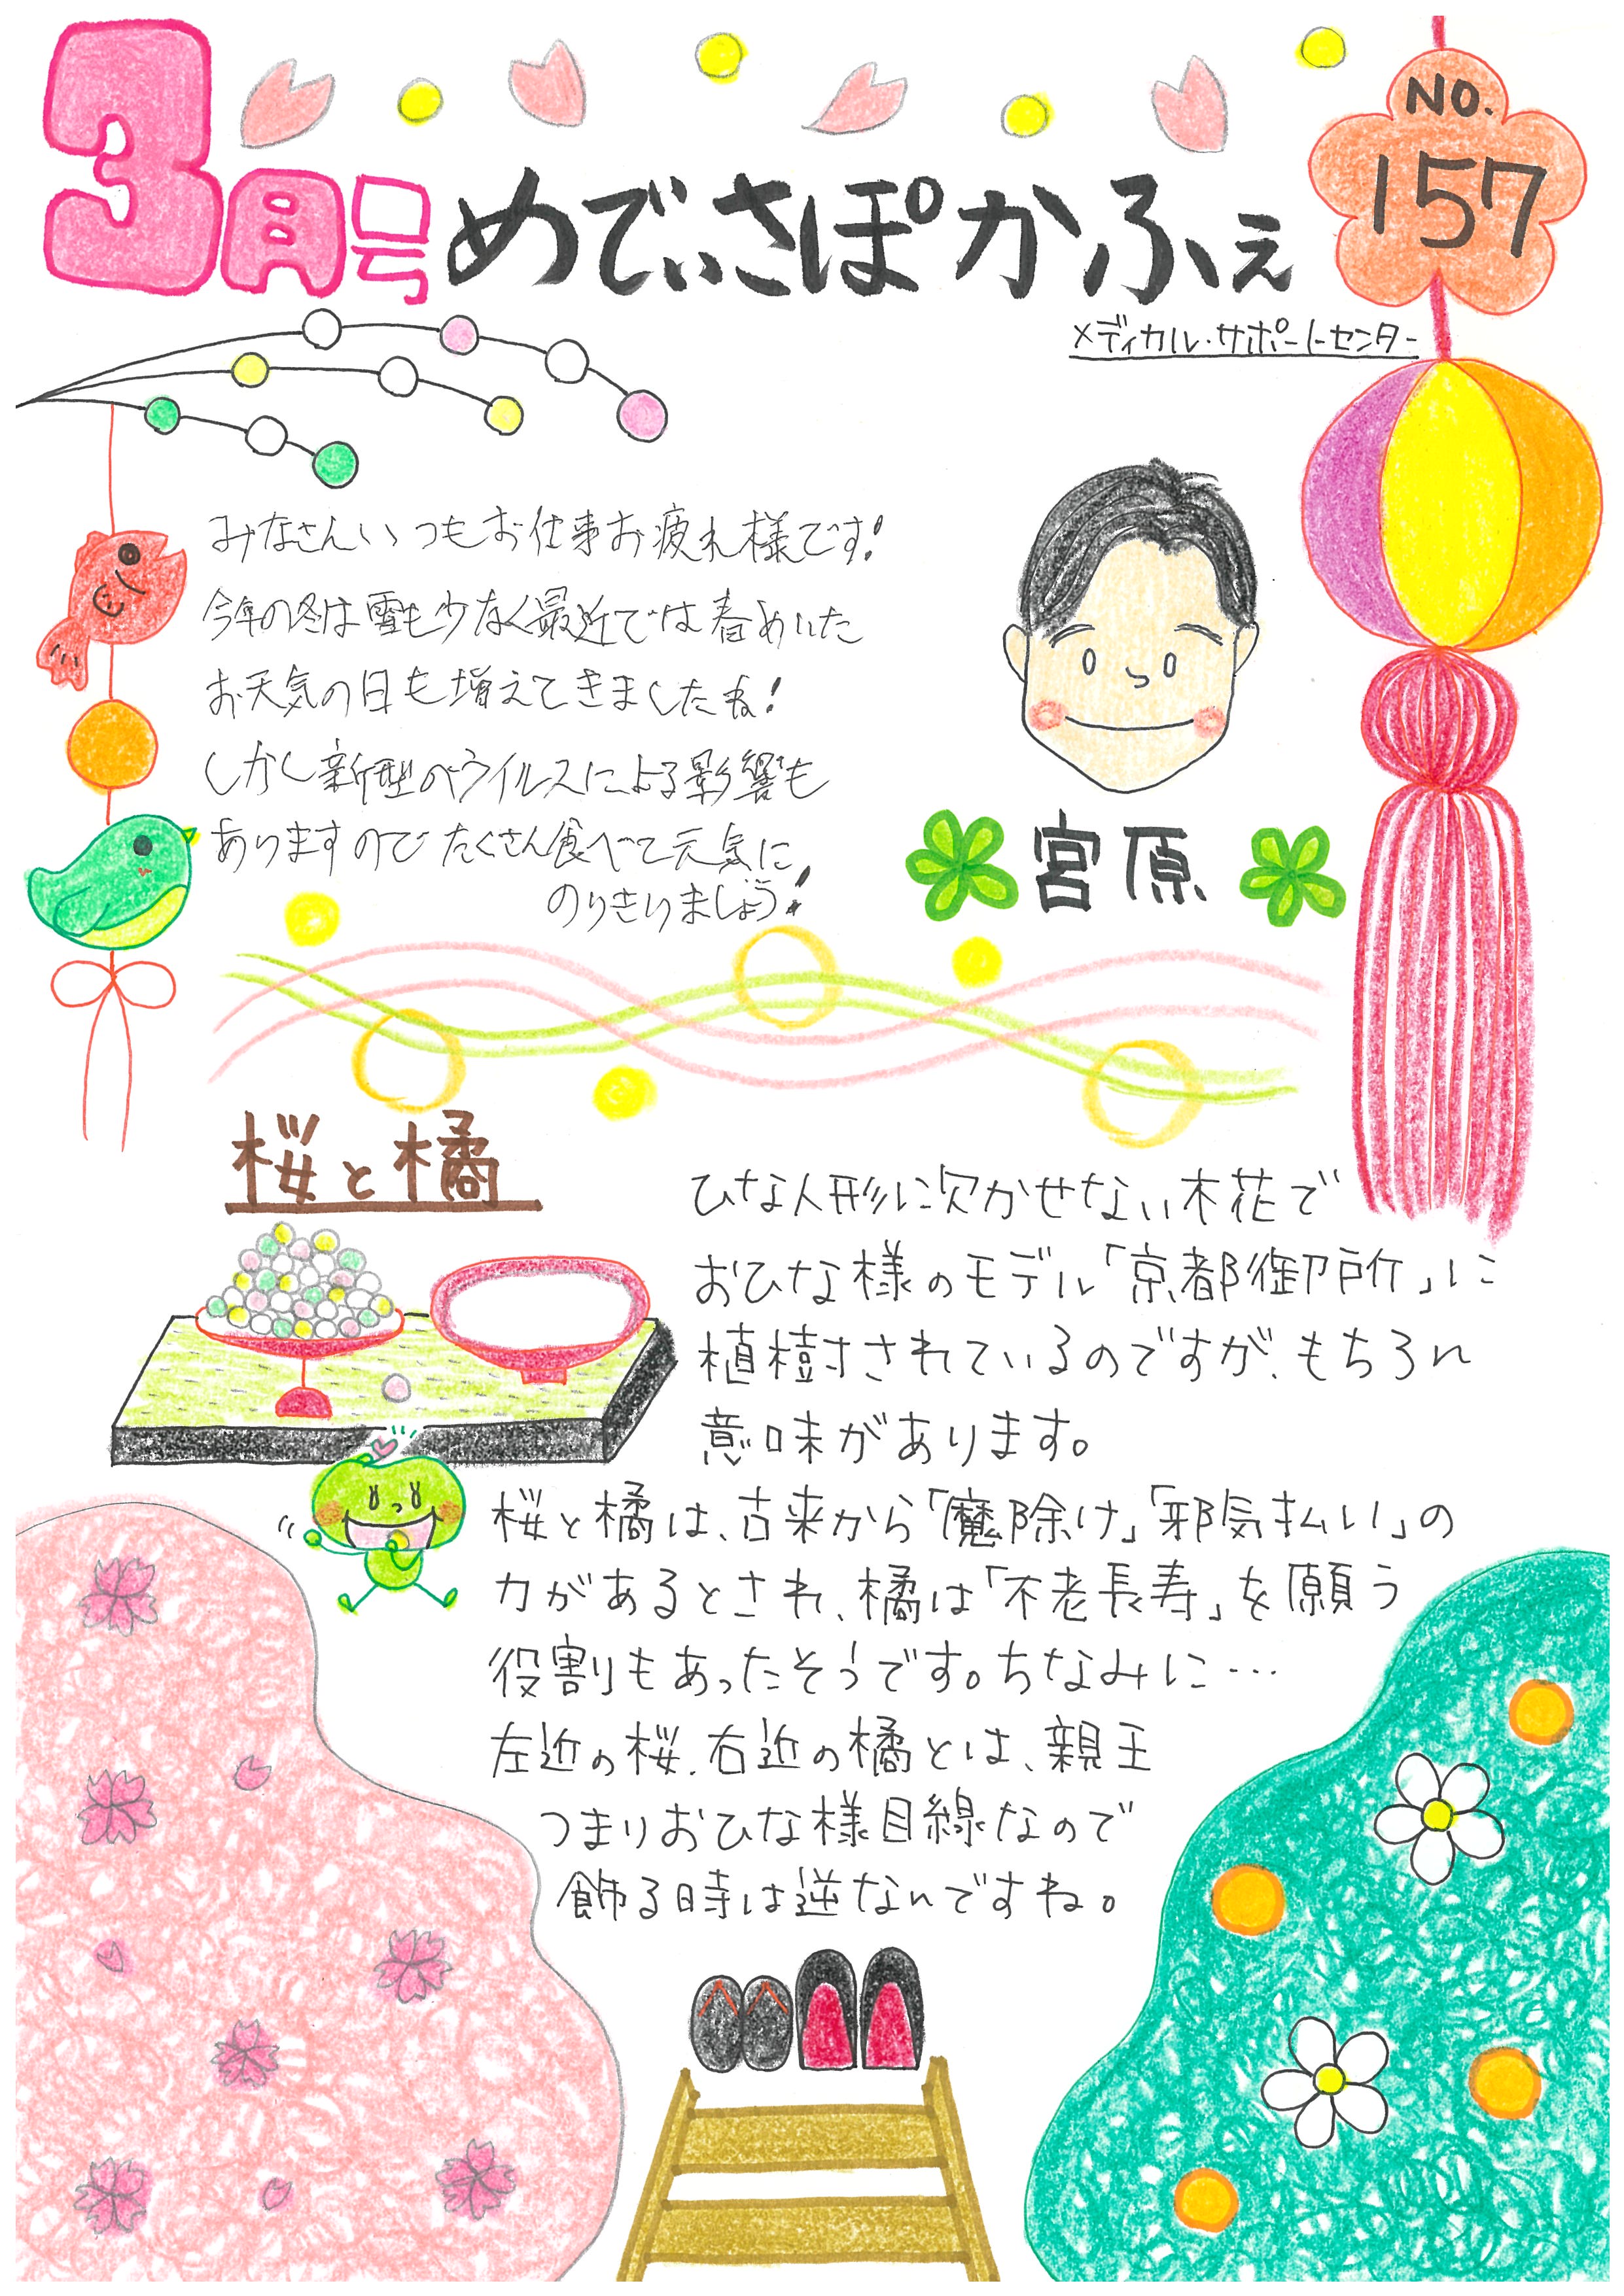 3月号 めでぃさぽかふぇ
NO.
157
メディカル・サポートセンター
みなさんいつもお仕事お疲れ様です!
今年の冬は雪も少なく最近では春めいた
お天気の日も増えてきましたね!
しかし新型のウイルスによる影響も
ありますのでたくさん食べて元気に
のりきりましょう!
宮原
桜と橘
ひな人形に欠かせない木花で
おひな様のモデル「京都御所」に
植樹されているのですが、もちろん
意味があります。
桜と橘は、古来から「魔除け」「邪気払い」の
力があるとされ、橘は「不老長寿」を願う
役割もあったそうです。ちなみに…
左近の桜.右近の橘とは、親王
つまりおひな様目線なので
飾る時は逆なんですね。